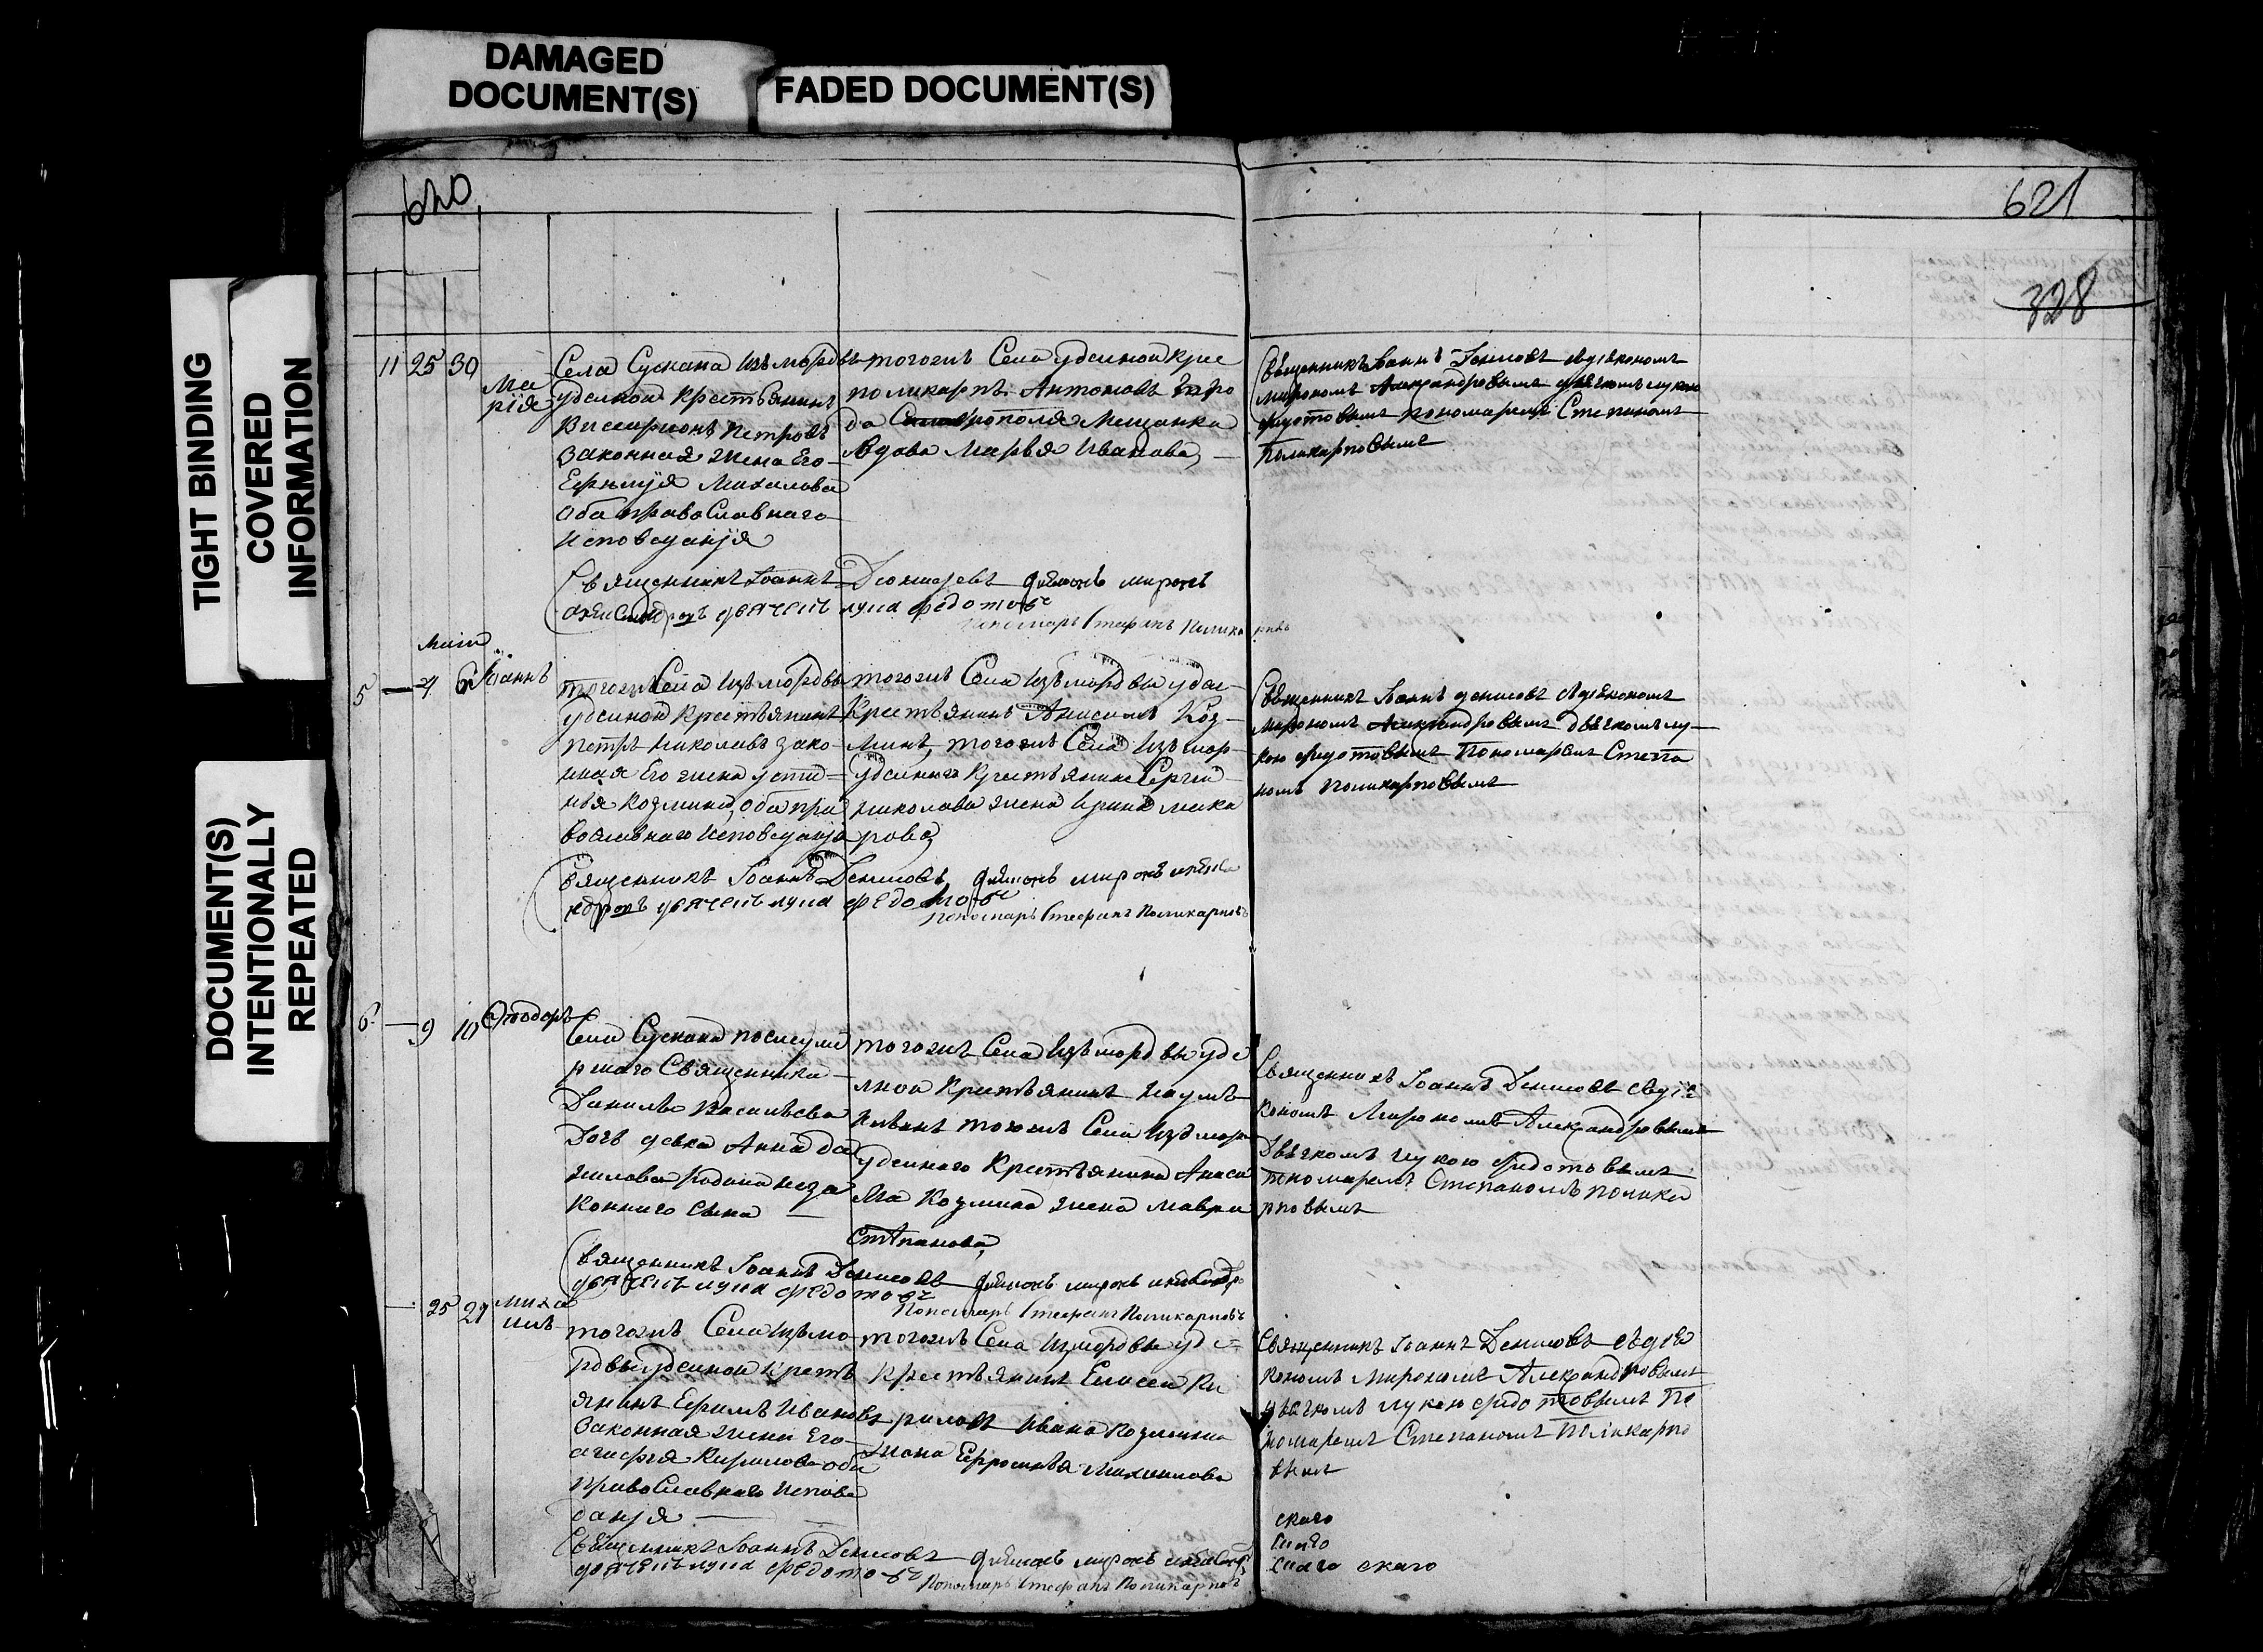 DAMAGED
DOCUMENT(S)
FADED DOCUMENT(S)
TIGHT BINDING
COVERED
INFORMATION
DOCUMENT(S)
INTENTIONALLY
REPEATED
620
621
328
11 25 30
Ма
рія
Села Сускана изъ мордвы
удельной крестьянинъ
Висарионъ Петровъ
законная жена Его
Михаилова
оба православнаго
исповеданія
тогожъ Села удельной крес
поликарпъ Антоновъ
Ставрополя Мещанка
вдова Марья Иванова
Священникъ Іоаннъ Денисовъ съ дьякономъ
Мирономъ Александровымъ дьячкомъ лукою
федотовымъ пономаремъ Степаномъ
Поликарповымъ
Священникъ Іоаннъ Денисовъ дьяконъ миронъ
дьячекъ лука федотовъ
Пономарь Стефанъ Поликарповъ
Маія
5 — 4 6 Іоаннъ
тогожъ Села изъ мордвы
удельной Крестьянинъ
петръ николаевъ зако
нная Его жена усти
нья козмина, оба пра
вославнаго исповеданія
тогожъ Села изъ мордвы удел
Крестьянинъ Анисимъ Коз
минъ, тогожъ Села изъ мор
удельнаго Крестьянина Сергия
николаева жена Ирина мака
рова
Священникъ Іоаннъ денисовъ съ дьякономъ
мирономъ Александровымъ дьячкомъ лу
кою федотовымъ Пономаремъ Степа
номъ поликарповымъ
Священникъ Іоаннъ Денисовъ дьяконъ миронъ алекса
ндровъ дьячекъ лука федотовъ
пономарь Стефанъ Поликарповъ
6 — 9 10 Феодоръ
Села Сускана после уме
ршаго Священника
Данила Васильева
Дочь девка Анна да
нилова родила неза
коннаго сына
тогожъ Села изъ мордвы уде
лной Крестьянинъ Наумъ
тогожъ Села изъ мор
удельнаго Крестьянина Аниси
ма Козмина жена мавра
Степанова
Священникъ Іоаннъ Денисовъ съ дья
кономъ Мирономъ Александровымъ
Дьячкомъ лукою федотовымъ
пономаремъ Степаномъ полика
рповымъ
Священникъ Іоаннъ Денисовъ дьяконъ миронъ александро
дьячекъ лука федотовъ
Пономарь Стефанъ Поликарповъ
— 25 29 миха
илъ
тогожъ Села изъ мо
рдвы удельной Кресть
янинъ Ефимъ Ивановъ
Законная жена Его
агафья Кирилова оба
православнаго испове
данія
тогожъ Села из мордвы уд
Крестьянинъ Елисей Ки
риловъ Ивана Козмина
жена Ефросинья Михаилова
Священникъ Іоаннъ Денисовъ съ дья
кономъ Мирономъ Александровымъ
дьячкомъ лукою федотовымъ по
номаремъ Степаномъ Поликарпо
вымъ
Священникъ Іоаннъ Денисовъ дьяконъ миронъ
дьячекъ лука федотовъ
Пономарь Стефанъ Поликарповъ
скаго
скаго